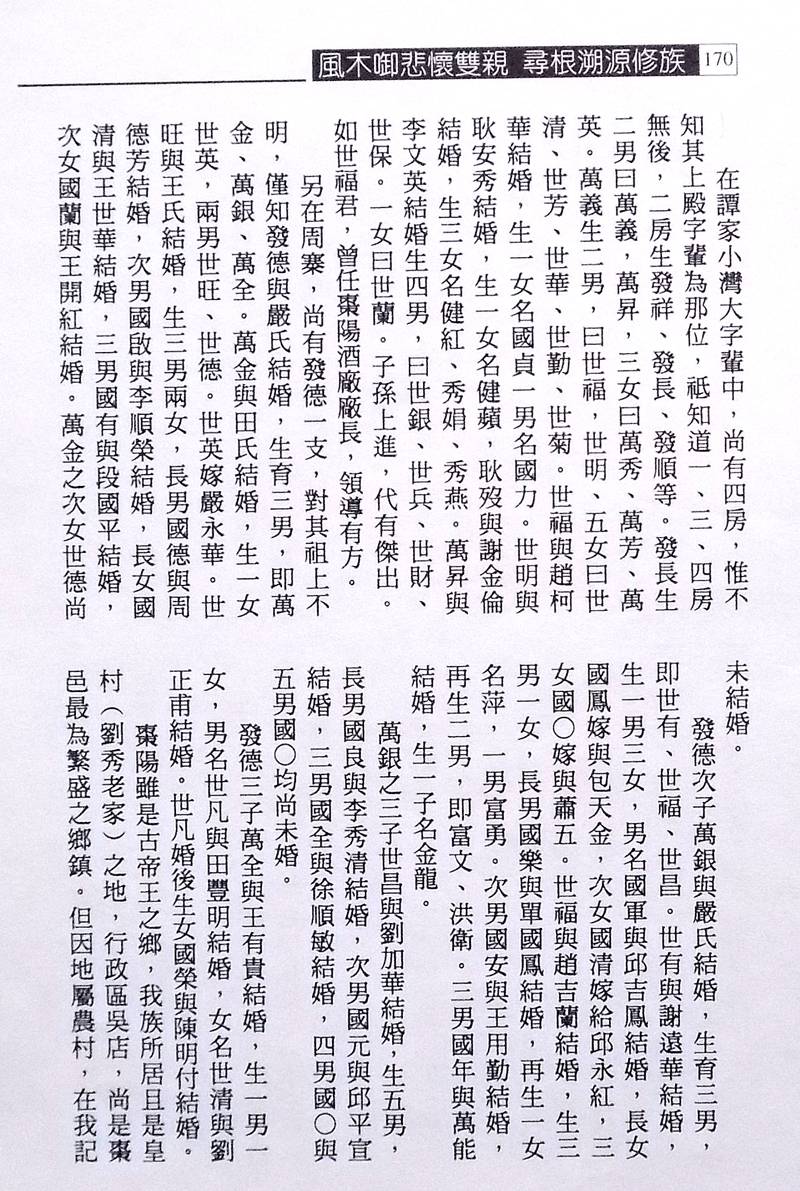 風木啣悲懷雙親 尋根溯源修族 170
在譚家小灣大字輩中，尚有四房，惟不
知其上殿字輩為那位，祗知道一、三、四房
無後，二房生發祥、發長、發順等。發長生
二男曰萬義，萬昇，三女曰萬秀、萬芳、萬
英。萬義生二男，曰世福，世明、五女曰世
清、世芳、世華、世勤、世菊。世福與趙柯
華結婚，生一女名國貞一男名國力。世明與
耿安秀結婚，生一女名健蘋，耿歿與謝金倫
結婚，生三女名健紅、秀娟、秀燕。萬昇與
李文英結婚生四男，曰世銀、世兵、世財、
世保。一女曰世蘭。子孫上進，代有傑出。
如世福君，曾任棗陽酒廠廠長，領導有方。
另在周寨，尚有發德一支，對其祖上不
明，僅知發德與嚴氏結婚，生育三男，即萬
金、萬銀、萬全。萬金與田氏結婚，生一女
世英，兩男世旺、世德。世英嫁嚴永華。世
旺與王氏結婚，生三男兩女，長男國德與周
德芳結婚，次男國啟與李順榮結婚，長女國
清與王世華結婚，三男國有與段國平結婚，
次女國蘭與王開紅結婚。萬金之次女世德尚
未結婚。
發德次子萬銀與嚴氏結婚，生育三男，
即世有、世福、世昌。世有與謝遠華結婚，
生一男三女，男名國軍與邱吉鳳結婚，長女
國鳳嫁與包天金，次女國清嫁給邱永紅，三
女國〇嫁與蕭五。世福與趙吉蘭結婚，生三
男一女，長男國樂與單國鳳結婚，再生一女
名萍，一男富勇。次男國安與王用勤結婚，
再生二男，即富文、洪衛。三男國年與萬能
結婚，生一子名金龍。
萬銀之三子世昌與劉加華結婚，生五男，
長男國良與李秀清結婚，次男國元與邱平宣
結婚，三男國全與徐順敏結婚，四男國〇與
五男國〇均尚未婚。
發德三子萬全與王有貴結婚，生一男一
女，男名世凡與田豐明結婚，女名世清與劉
正甫結婚。世凡婚後生女國榮與陳明付結婚。
棗陽雖是古帝王之鄉，我族所居且是皇
村（劉秀老家）之地，行政區吳店，尚是棗
邑最為繁盛之鄉鎮。但因地屬農村，在我記